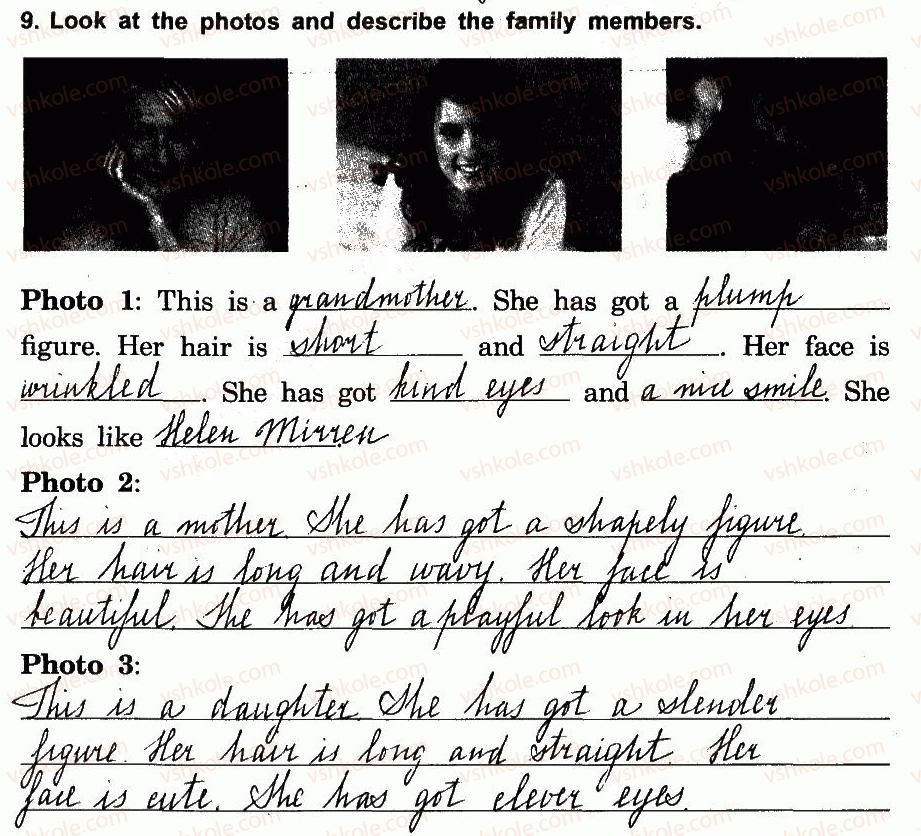 9. Look at the photos and describe the family members.
Photo 1: This is a grandmother. She has got a plump
figure. Her hair is short and straight. Her face is
wrinkled. She has got kind eyes and a nice smile. She
looks like Helen Mirren
Photo 2:
This is a mother. She has got a shapely figure.
Her hair is long and wavy. Her face is
beautiful. She has got a playful look in her eyes.
Photo 3:
This is a daughter. She has got a slender
figure. Her hair is long and straight. Her
face is cute. She has got clever eyes.
vshkole.com